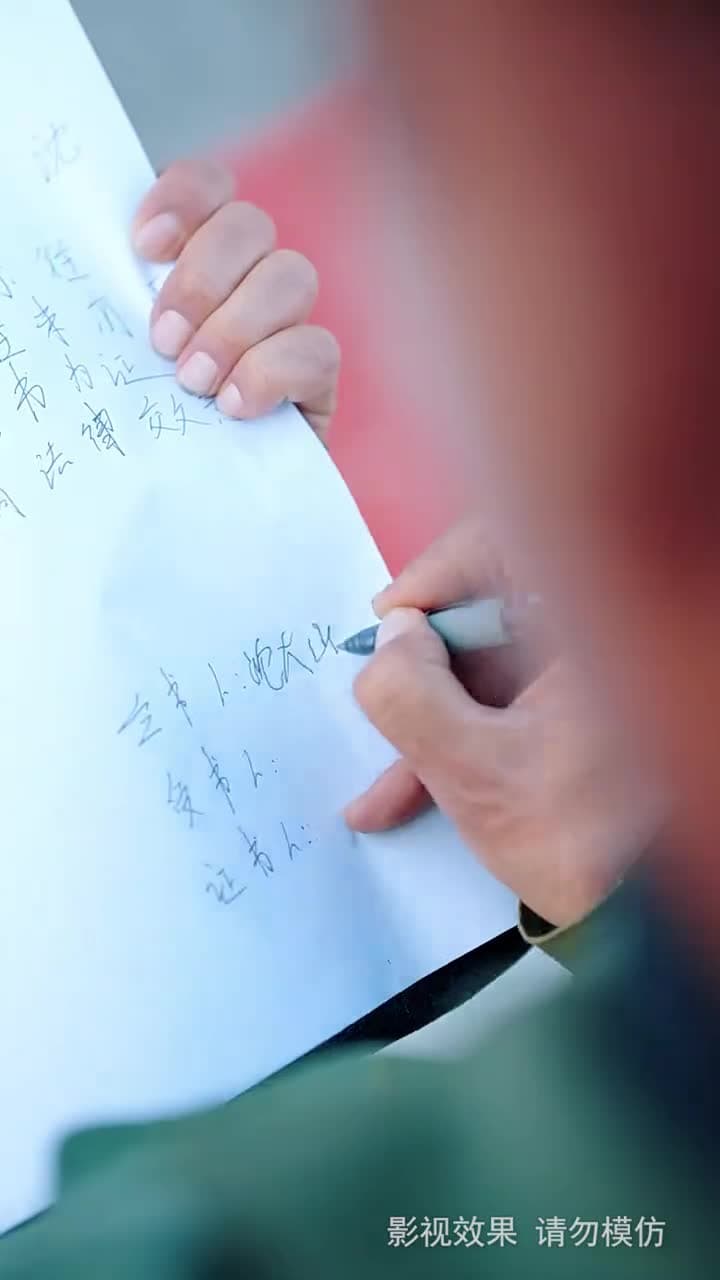 沈
往
未
书为证
法律效
立书人:沈大山
受书人:
证书人:
影视效果 请勿模仿